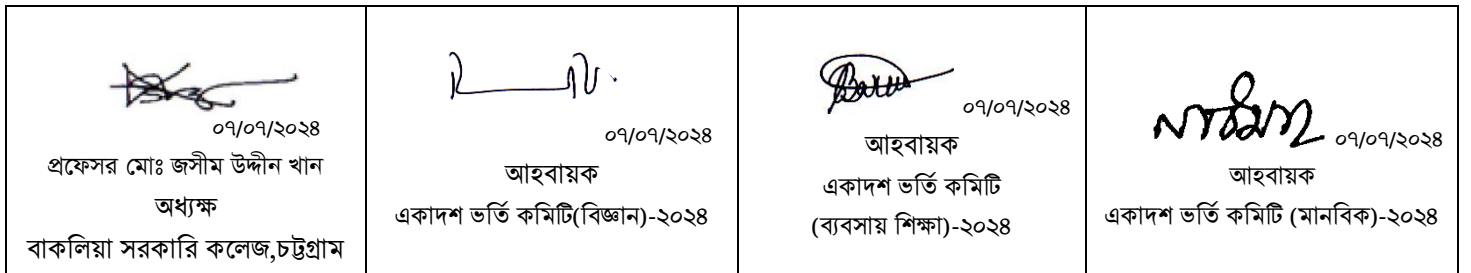 ০৭/০৭/২০২৪
প্রফেসর মোঃ জসীম উদ্দীন খান
অধ্যক্ষ
বাকলিয়া সরকারি কলেজ,চট্টগ্রাম
০৭/০৭/২০২৪
আহবায়ক
একাদশ ভর্তি কমিটি(বিজ্ঞান)-২০২৪
০৭/০৭/২০২৪
আহবায়ক
একাদশ ভর্তি কমিটি
(ব্যবসায় শিক্ষা)-২০২৪
০৭/০৭/২০২৪
আহবায়ক
একাদশ ভর্তি কমিটি (মানবিক)-২০২৪